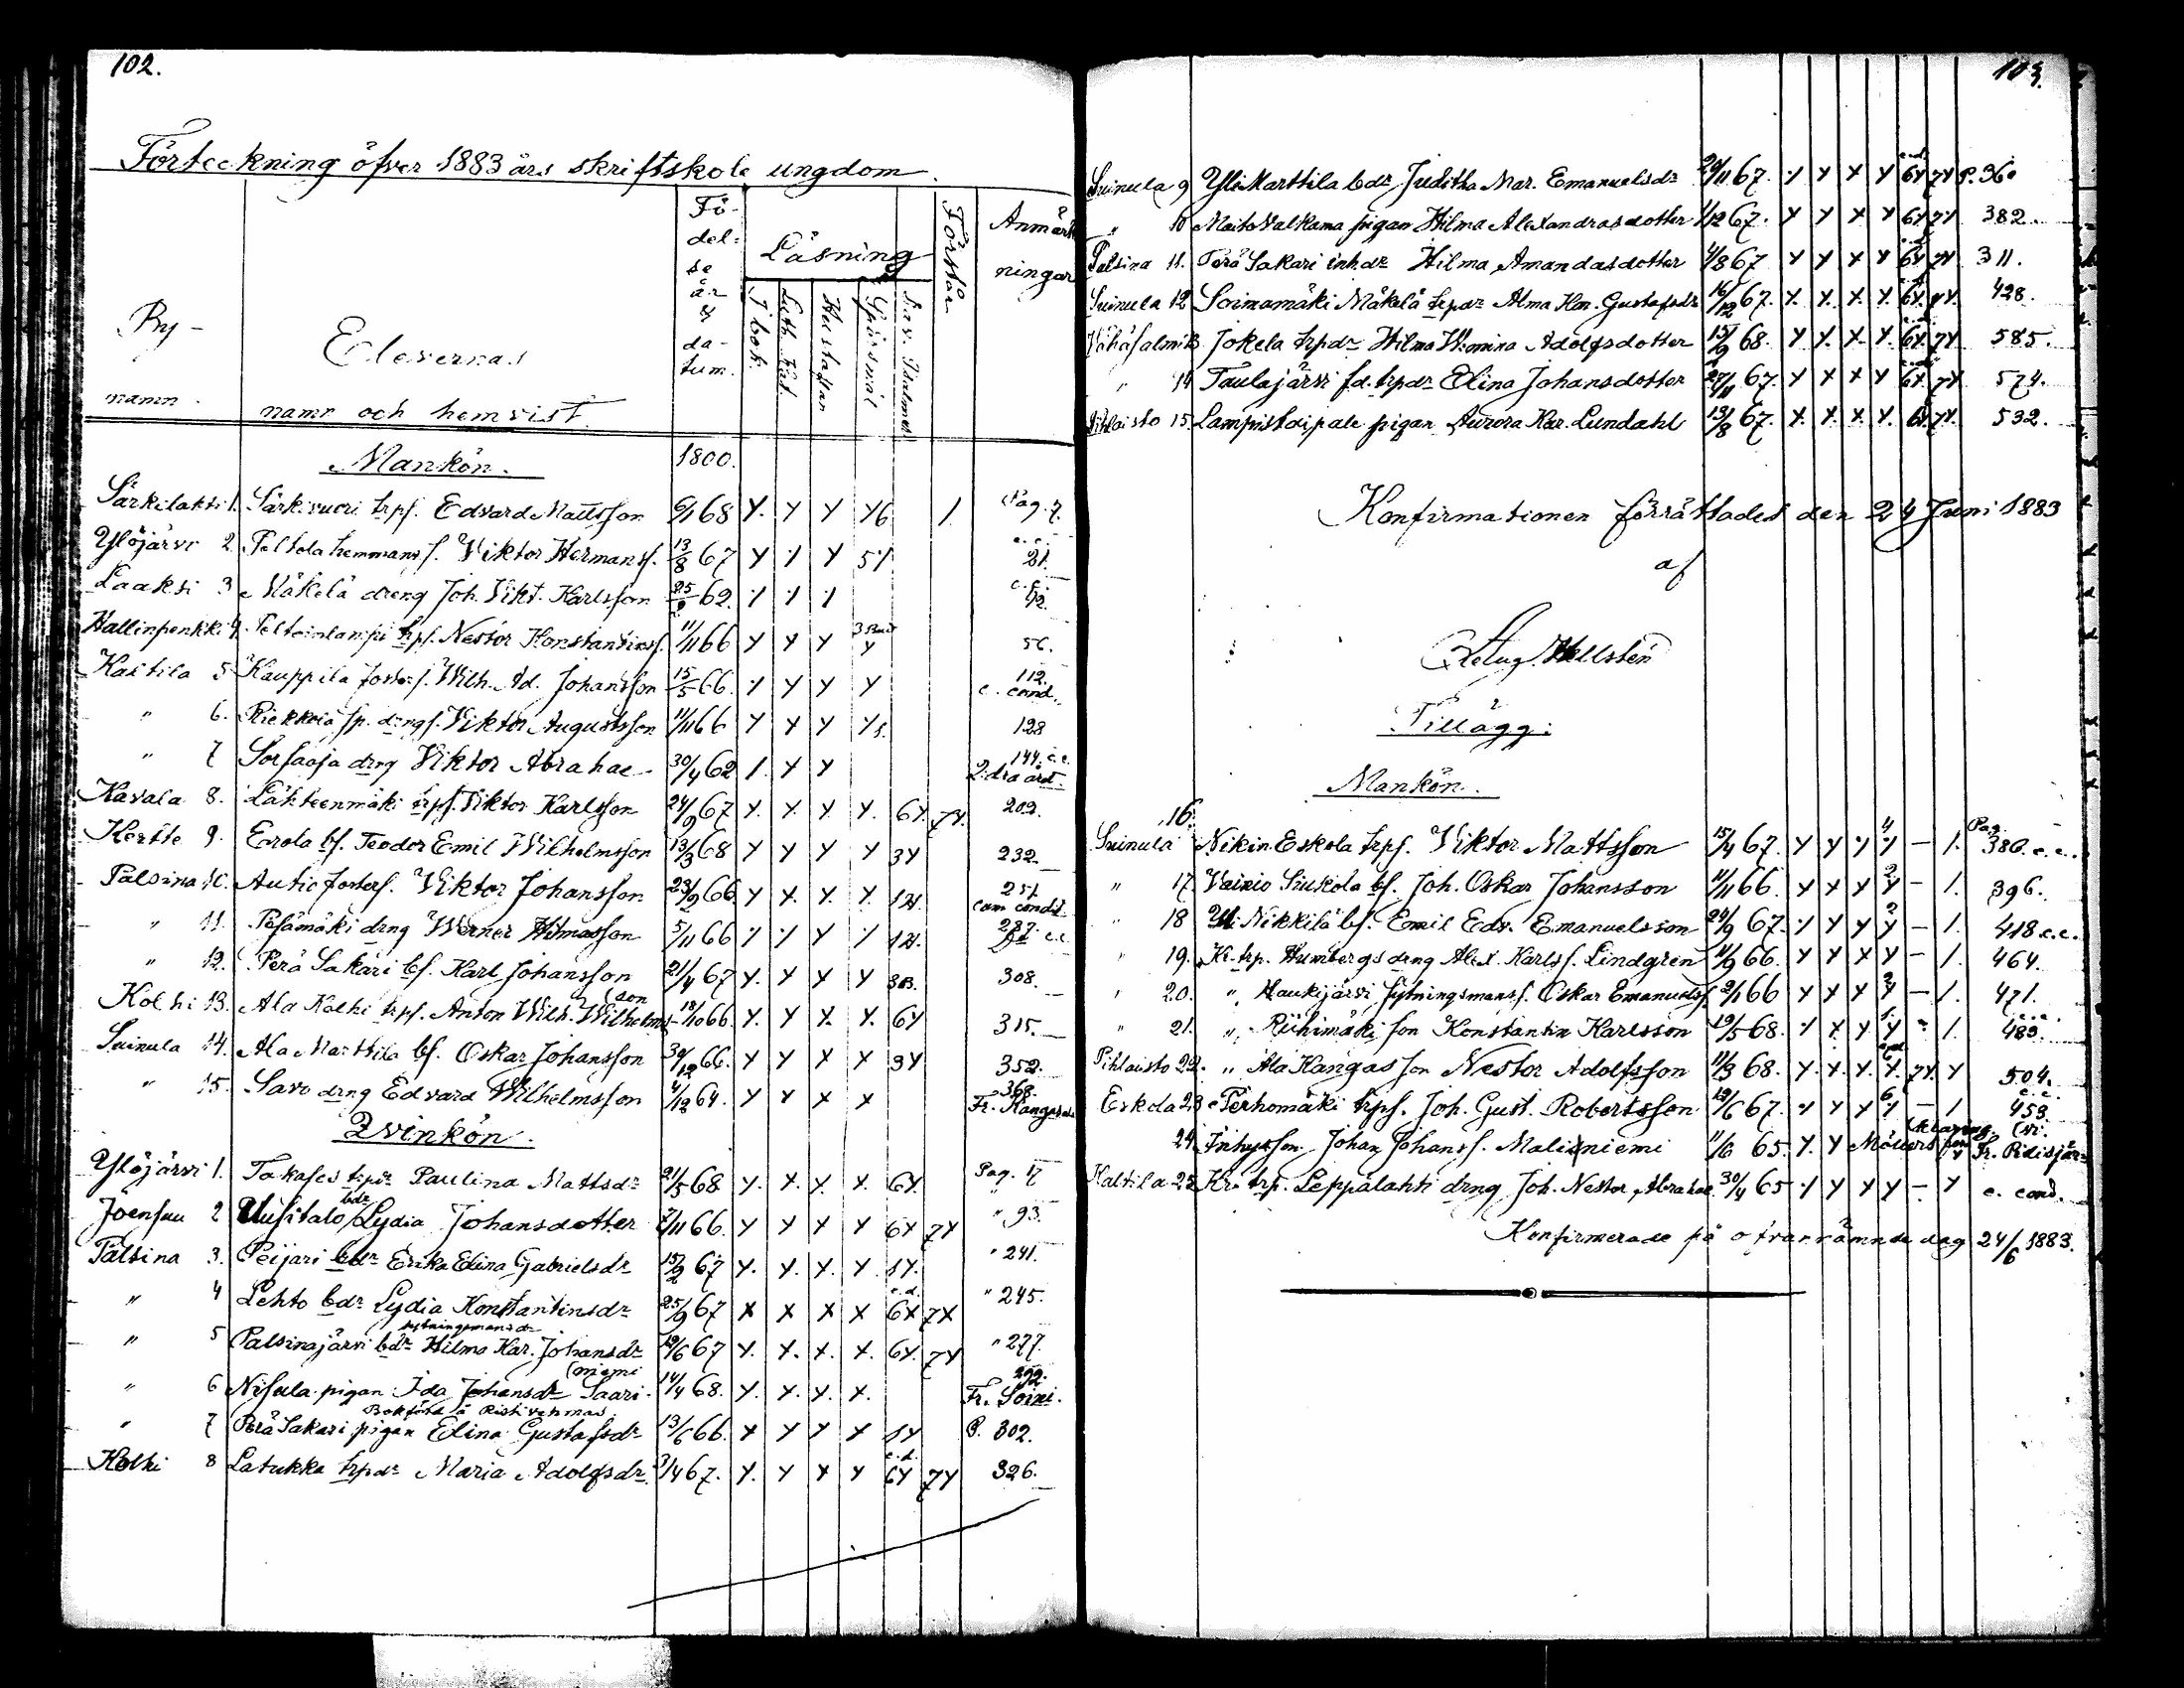 102.
Förteckning öfver 1883 års skriftskole ungdom.
By-
namn.
Elevernas
namn och hemvist.
Fö-
del-
se
år
&
da-
tum.
Läsning
I bok.
Luth. Kat.
Hustaflan
Spörsmål
Dav. Psalmer
Förstår
Anmärk
ningar
Mankön. 1800.
Särkilaks 1. Särkivuori trps. Edvard Mattsson 6/1 68 Y. Y Y Y6 1. Pag. 7.
Ylöjärvi 2 Peltola hemmans s. Viktor Hermanss. 13/8 67 Y Y Y 5Y c.c. 21.
Laaksi 3 Mäkelä dreng Joh. Vikt. Karlsson 25/2 62. Y Y Y c.c. 42.
Hallinpenkki 4. Peltoinlampi trps. Nestor Konstantinss. 11/11 66 Y Y Y Y 56.
Kastila 5 Kauppila fosters. Wilh. Ad. Johansson 15/5 66. Y Y Y Y 112. c. cond.
" 6. Riekkola sp. drngs. Viktor Augustsson 11/11 66 Y Y Y Y 128
" 7 Sorsaoja drng Viktor Abrahae 30/4 62 1. Y Y 144. c.c. 2. dra året.
Kavala 8. Lähteenmäki trps. Viktor Karlsson 24/9 67 Y. Y. Y. Y. 6Y. 7Y. 202.
Kertte 9. Erola bs. Teodor Emil Wilhelmsson 13/3 68 Y Y Y Y 3Y 232
Palsina 10. Autio fosters. Viktor Johansson 23/9 66 Y Y. Y. Y. 1Y. 251 cum condit.
" 11. Pesämäki drng Werner Hilmasson 5/11 66 Y Y Y Y 1Y. 287. c.c.
" 12. Perä Sakari bs. Karl Johansson 21/4 67 Y Y Y Y 3B. 308.
Kolhi 13. Ala Kolhi trps. Anton Wilh. Wilhelms-(son 18/10 66. Y. Y. Y. Y. 6Y 315.
Suinula 14. Ala Marttila bs. Oskar Johansson 30/12 66. Y Y X X 3Y 352.
" 15. Savo drng Edvard Wilhelmsson 4/12 64. Y Y X X 368. Fr. Kangasala
Qvinkön.
Ylöjärvi 1. Takases trpdr Paulina Mattsdr 21/5 68 Y. Y. Y. Y. 6Y. Pag. 17
Joensuu 2 Uusitalo bdr Lydia Johansdotter 7/11 66. Y Y Y Y 6Y 7Y " 93.
Palsina 3. Peijari bdr Erika Edina Gabrielsdr 15/2 67 Y. Y. Y. Y. 1Y. " 241.
" 4 Lehto bdr Lydia Konstantinsdr 25/9 67 X X X X 6X 7X " 245.
sytningsmansdr
" 5 Palsinajärvi bdr Hilma Kar. Johansdr 19/6 67 Y. X. X. X. 6Y. 7Y " 277.
" 6 Nisula pigan Ida Johansdr Saari-(niemi 14/4 68. Y. Y. Y. X. 292. Fr. Soini.
Bokförd å Ristivehmas
" 7 Perä Sakari pigan Edina Gustafsdr 13/6 66. Y Y Y Y 1Y P. 302.
Kolhi 8 Latukka trpdr Maria Adolfsdr. 3/4 67. Y. Y Y Y 6Y 7Y 326.
103.
Suinula 9 YliMarttila bdr Juditha Mar. Emanuelsdr 29/11 67. Y Y X Y 6Y 7Y P. 360
" 10 MaitoValkama pigan Hilma Alexandrasdotter 1/12 67. Y Y X X 6Y 7Y. 382.
Palsina 11. Perä Sakari inhdr Hilma Amandasdotter 4/8 67 Y Y X X 6Y 7Y 311.
Suinula 12 Soimamäki Mäkelä trpdr Alma Hln. Gustafsdr 16/12 67. Y. X. X. X. 6Y. 7Y. 428.
Vähäsalmi 13 Jokela trpdr Hilma Wmina Adolfsdotter 15/9 68. Y Y. X. Y. 6Y. 7Y. 585.
" 14 Taulajärvi fd. trpdr Edina Johansdotter 27/11 67. Y X X Y 6Y. 7Y 574.
Pihlaisto 15. Lampistoipale pigan Aurora Kar. Lundahl 13/8 67. X. X. X. Y. 6Y. 7Y. 532.
Konfirmationen förrättades den 24 Juni 1883
af
Aug. Hellstén
Tillägg:
Mankön.
16.
Suinula Nikin Eskola trps. Viktor Mattsson 15/4 67. Y Y Y Y – 1. Pag. 386. c.c.
" 17. Vainio Siukola bs. Joh. Oskar Johansson 11/11 66. Y X X Y – 1. 396.
" 18 Yli Nikkilä bs. Emil Edv. Emanuelsson 24/9 67. Y Y Y Y – 1. 418 c.c.
" 19. Kr. trp. Humbergs drng Alex. Karlss. Lindgren 11/9 66. Y Y Y Y – 1. 464.
" 20. " Haukijärvi sytningsmans s. Oskar Emanuelss. 2/1 66 Y X X Y – 1. 471.
" 21. " Riihimäki son Konstantin Karlsson 19/5 68. Y X Y Y – 1. 489.
Pihlaisto 22. " Ala Kangas son Nestor Adolfsson 11/3 68. Y. Y. Y. Y. 7Y. Y 504.
Eskola 23 Perhomäki trps. Joh. Gust. Robertsson 19/6 67. Y Y Y Y – 1 453.
24. Inhysson Johan Johanss. Maliniemi 11/6 65. Y. Y Fr. Pidisjär-(vi.
Kaltila 25 Kr. trp. Leppälahti drng Joh. Nestor Abrahae 30/4 65 Y Y X Y – Y c. cond.
Konfirmerade på ofvannämnde dag 24/6 1883.